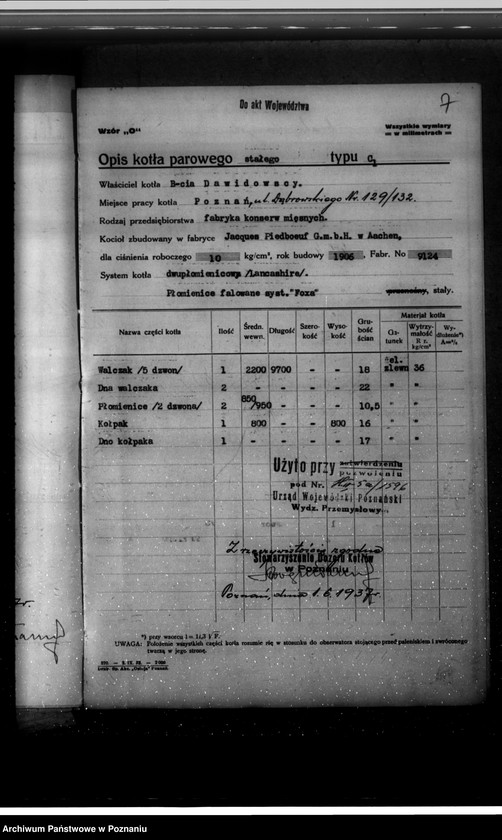 Do akt Województwa
7
Wzór „O"
Wszystkie wymiary
— w milimetrach —
Opis kotła parowego stałego typu C₁
Właściciel kotła B-cia Dawidowscy.
Miejsce pracy kotła Poznań, ul. Dąbrowskiego Nr. 129/132.
Rodzaj przedsiębiorstwa fabryka konserw mięsnych.
Kocioł zbudowany w fabryce Jacques Piedboeuf G.m.b.H. w Aachen,
dla ciśnienia roboczego 10 kg/cm², rok budowy 1906, Fabr. No 9124
System kotła dwupłomienicowy /Lancashire/.
Płomienice falowane syst. "Foxa" przenośny, stały.
Nazwa części kotła Ilość Średn. wewn. Długość Szerokość Wysokość Grubość ścian Materjał kotła
Gatunek Wytrzymałość R z. kg/cm² Wydłużenie*) A=%
Walczak /5 dzwon/ 1 2200 9700 - - 18 żel. zlewn 36
Dna walczaka 2 - - - - 22 " "
Płomienice /2 dzwona/ 2 850/950 - - - 10,5 " "
Kołpak 1 800 - - 800 16 " "
Dno kołpaka 1 - - - - 17 " "
Użyto przy zatwierdzeniu
pozwoleniu
pod Nr.
Urząd Wojewódzki Poznański
Wydz. Przemysłowy
Z rzeczywistością zgodne
Stowarzyszenie Dozoru Kotłów
w Poznaniu
Poznań, dnia 1.6.1937r.
*) przy wzorcu l = 11,3 √F.
UWAGA: Położenie wszystkich części kotła rozumie się w stosunku do obserwatora stojącego przed paleniskiem i zwróconego
twarzą w jego stronę.
Archiwum Państwowe w Poznaniu